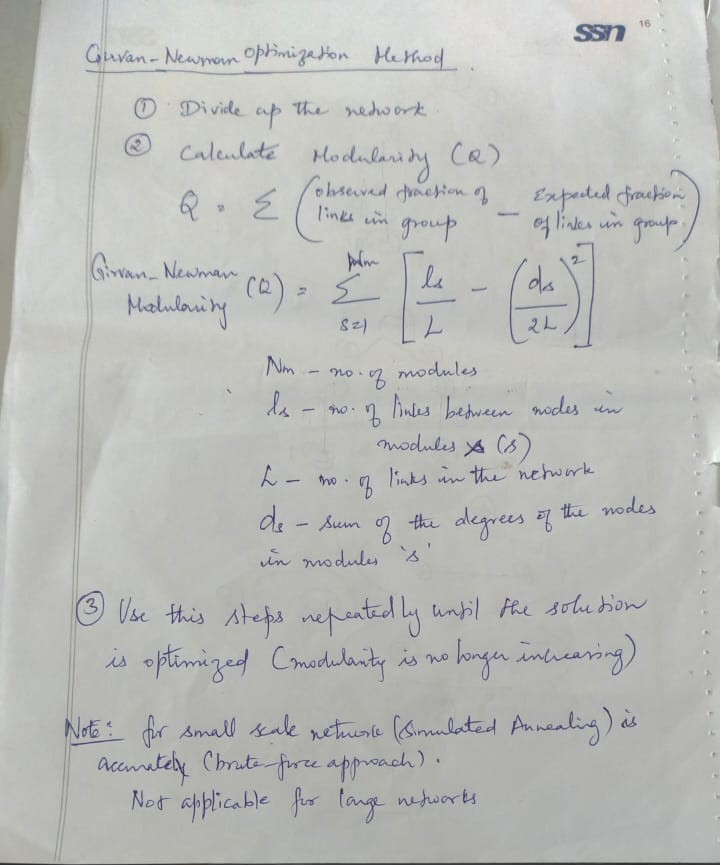 ssn 16
Girvan-Newman Optimization Method
① Divide up the network
② Calculate Modularity (Q)
Q = Σ (observed fraction of links in group − Expected fraction of links in group)
Girvan-Newman Modularity (Q) = Σ Nm s=1 [ls/L − (ds/2L)²]
Nm - no. of modules
ls - no. of links between nodes in
modules (s)
L - no. of links in the network
ds - sum of the degrees of the nodes
in modules 's'
③ Use this steps repeatedly until the solution
is optimized (modularity is no longer increasing)
Note: for small scale network (Simulated Annealing) is
accurately (brute-force approach).
Not applicable for large networks